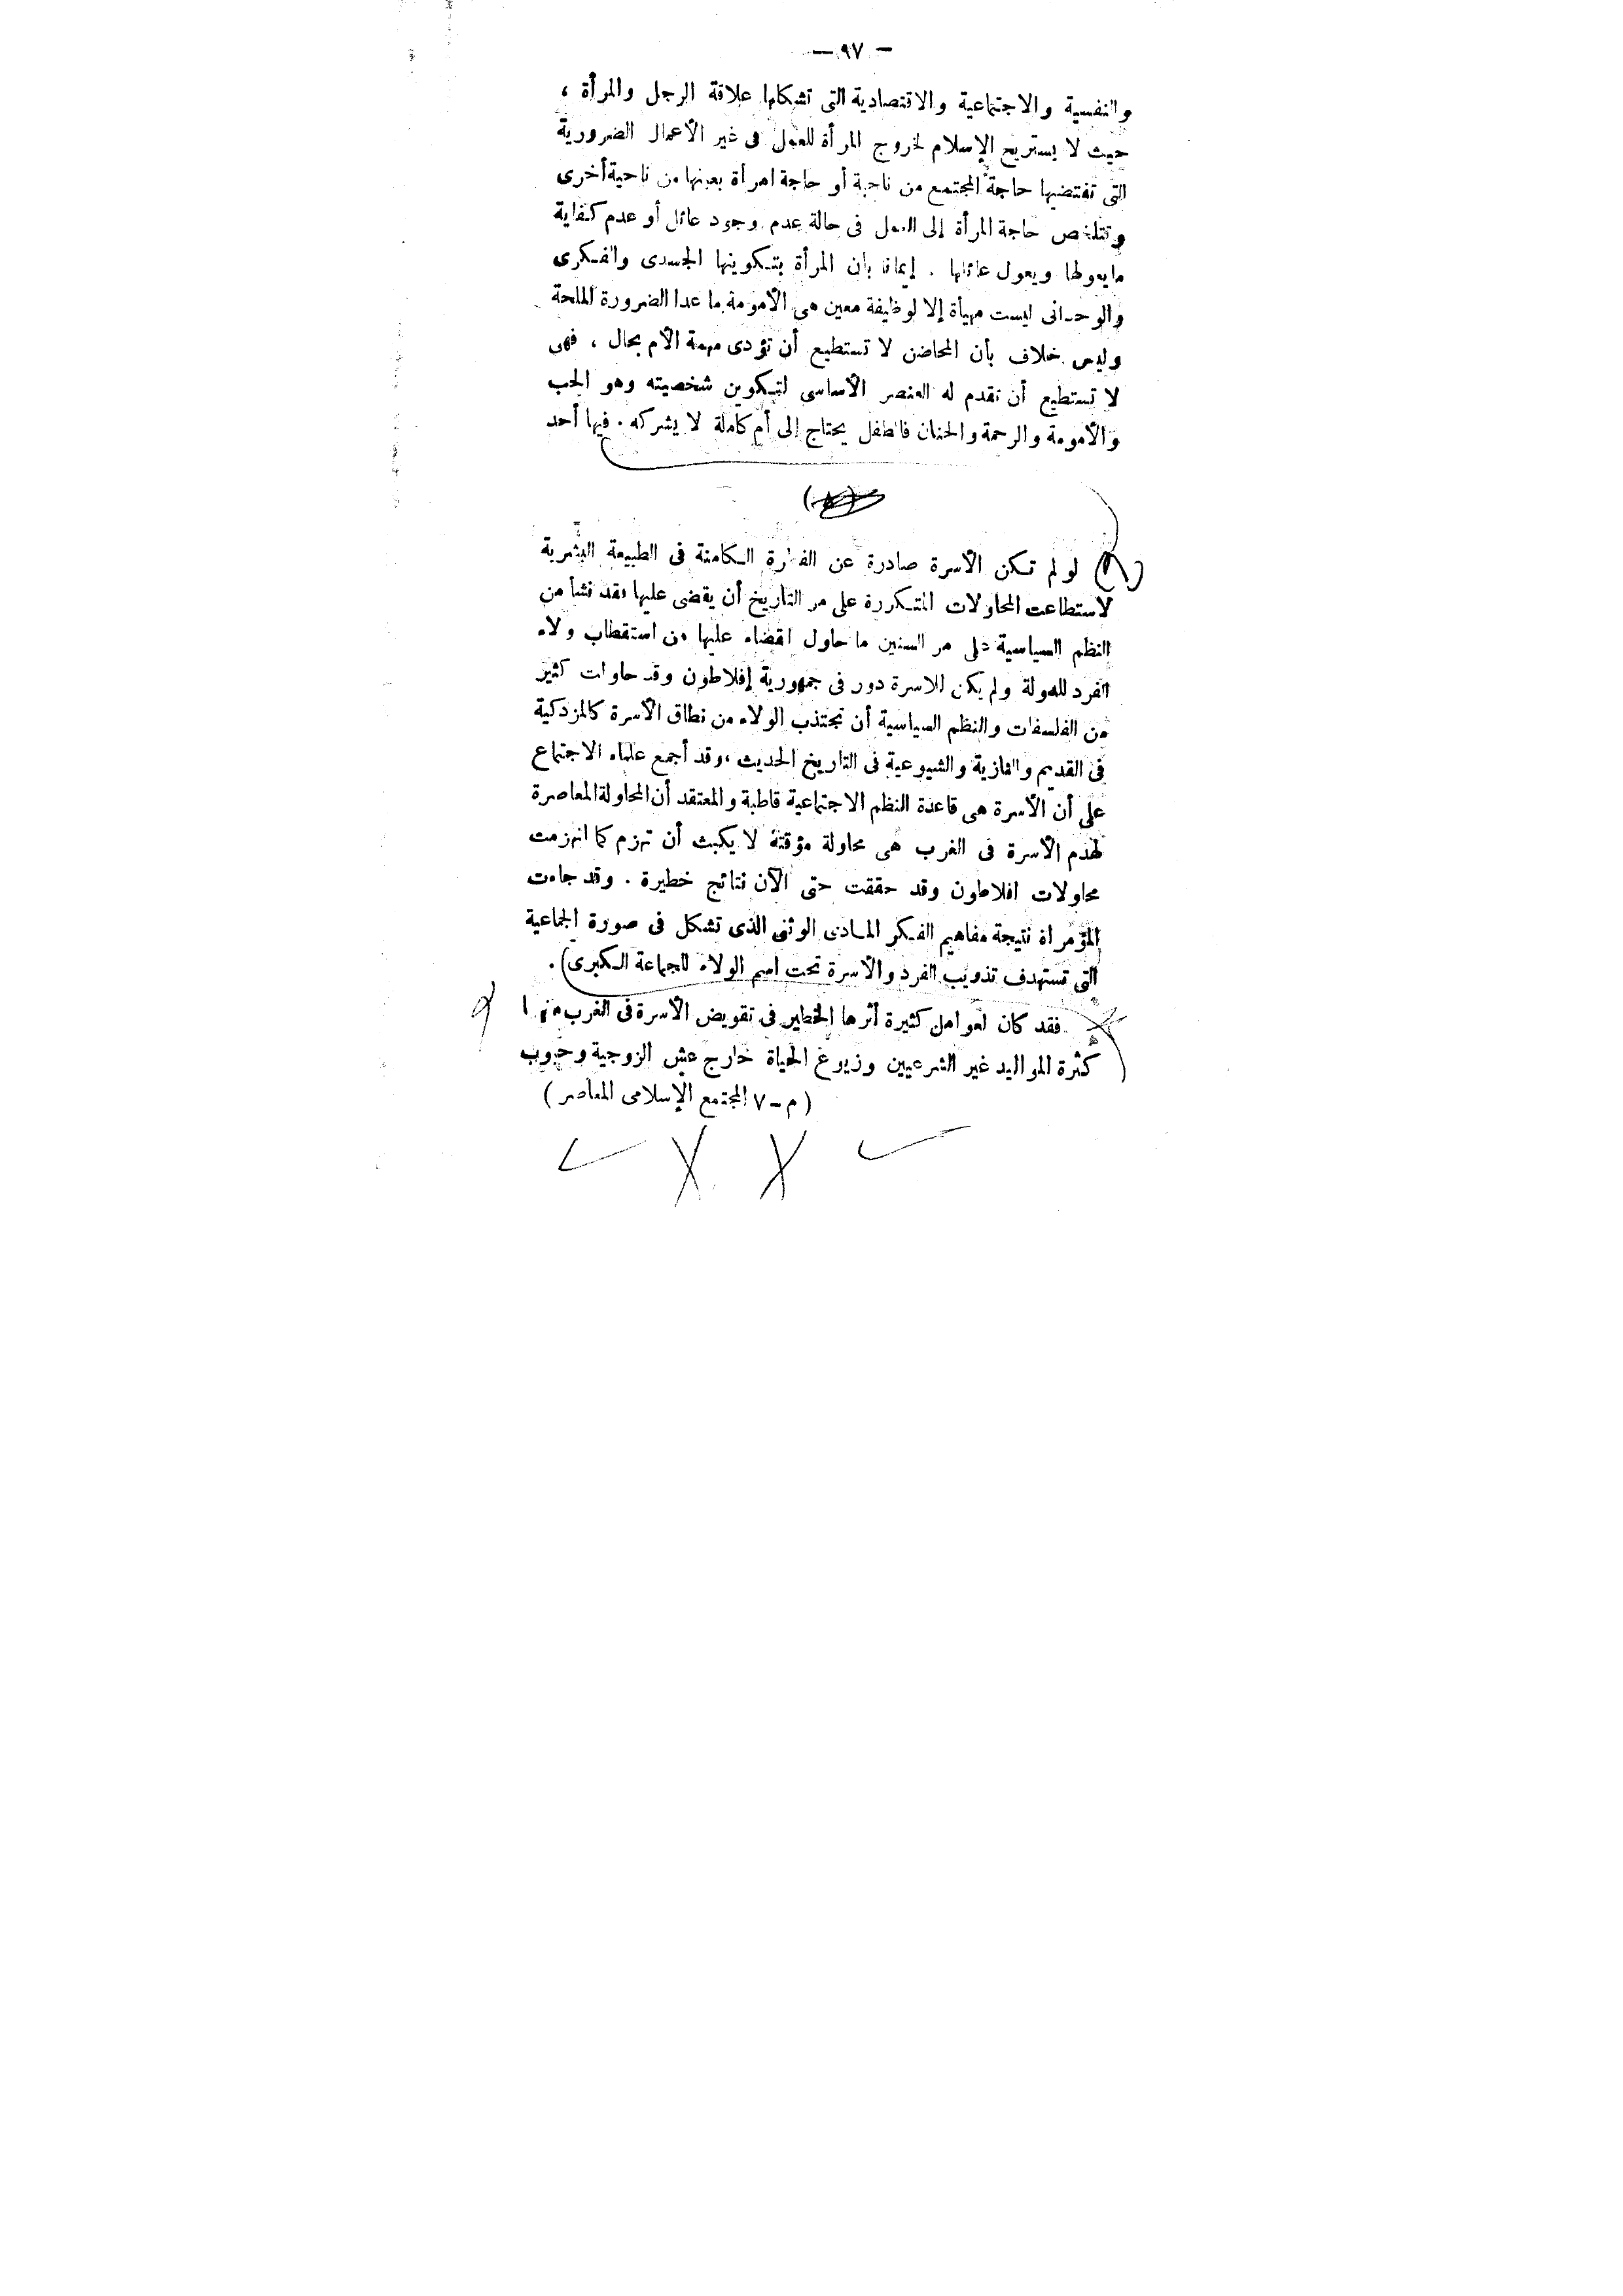 — ٩٧ —
والنفسية والاجتماعية والاقتصادية التى تشكلها علاقة الرجل والمرأة ،
حيث لا يستريح الإسلام لخروج المرأة للعمل فى غير الأعمال الضرورية
التى تقتضيها حاجة المجتمع من ناحية أو حاجة امرأة بعينها من ناحية أخرى
وتتلخص حاجة المرأة إلى العمل فى حالة عدم وجود عائل أو عدم كفاية
ما يعولها ويعول عائلها . إيمانا بأن المرأة بتكوينها الجسدى والفكرى
والوجدانى ليست مهيأة إلا لوظيفة معين هى الأمومة ما عدا الضرورة الملحة
وليس خلاف بأن المحاضن لا تستطيع أن تؤدى مهمة الأم بحال ، فهى
لا تستطيع أن تقدم له العنصر الأساسى لتكوين شخصيته وهو الحب
والأمومة والرحمة والحنان فالطفل يحتاج إلى أم كاملة لا يشركه . فيها أحد
(٨)
لو لم تكن الأسرة صادرة عن الفطرة الكامنة فى الطبيعة البشرية
لاستطاعت المحاولات المتكررة على مر التاريخ أن يقضى عليها فقد نشأ من
النظم السياسية على مر السنين ما حاول القضاء عليها من استقطاب ولاء
الفرد للدولة ولم يكن للاسرة دور فى جمهورية إفلاطون وقد حاولت كثير
من الفلسفات والنظم السياسية أن تجتذب الولاء من نطاق الأسرة كالمزدكية
فى القديم والنازية والشيوعية فى التاريخ الحديث ، وقد أجمع علماء الاجتماع
على أن الأسرة هى قاعدة النظم الاجتماعية قاطبة والمعتقد أن المحاولة المعاصرة
لهدم الأسرة فى الغرب هى محاولة مؤقتة لا يكبث أن تهزم كما انهزمت
محاولات افلاطون وقد حققت حتى الآن نتائج خطيرة . وقد جاءت
المؤمرأة نتيجة مفاهيم الفكر المادى الوثنى الذى تشكل فى صورة الجماعية
التى تستهدف تذويب الفرد والأسرة تحت اسم الولاء للجماعة الكبرى) .
فقد كان لعوامل كثيرة أثرها الخطير فى تقويض الأسرة فى الغرب منها
كثرة المواليد غير الشرعيين وزيوغ الحياة خارج عش الزوجية وحبوب
( م – ٧ المجتمع الإسلامى المعاصر )